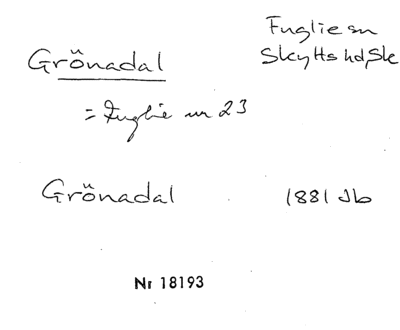 Fuglie sn
Skytts hd, Sk
Grönadal
= Fuglie nr 23
Grönadal 1881 Jb
Nr 18193